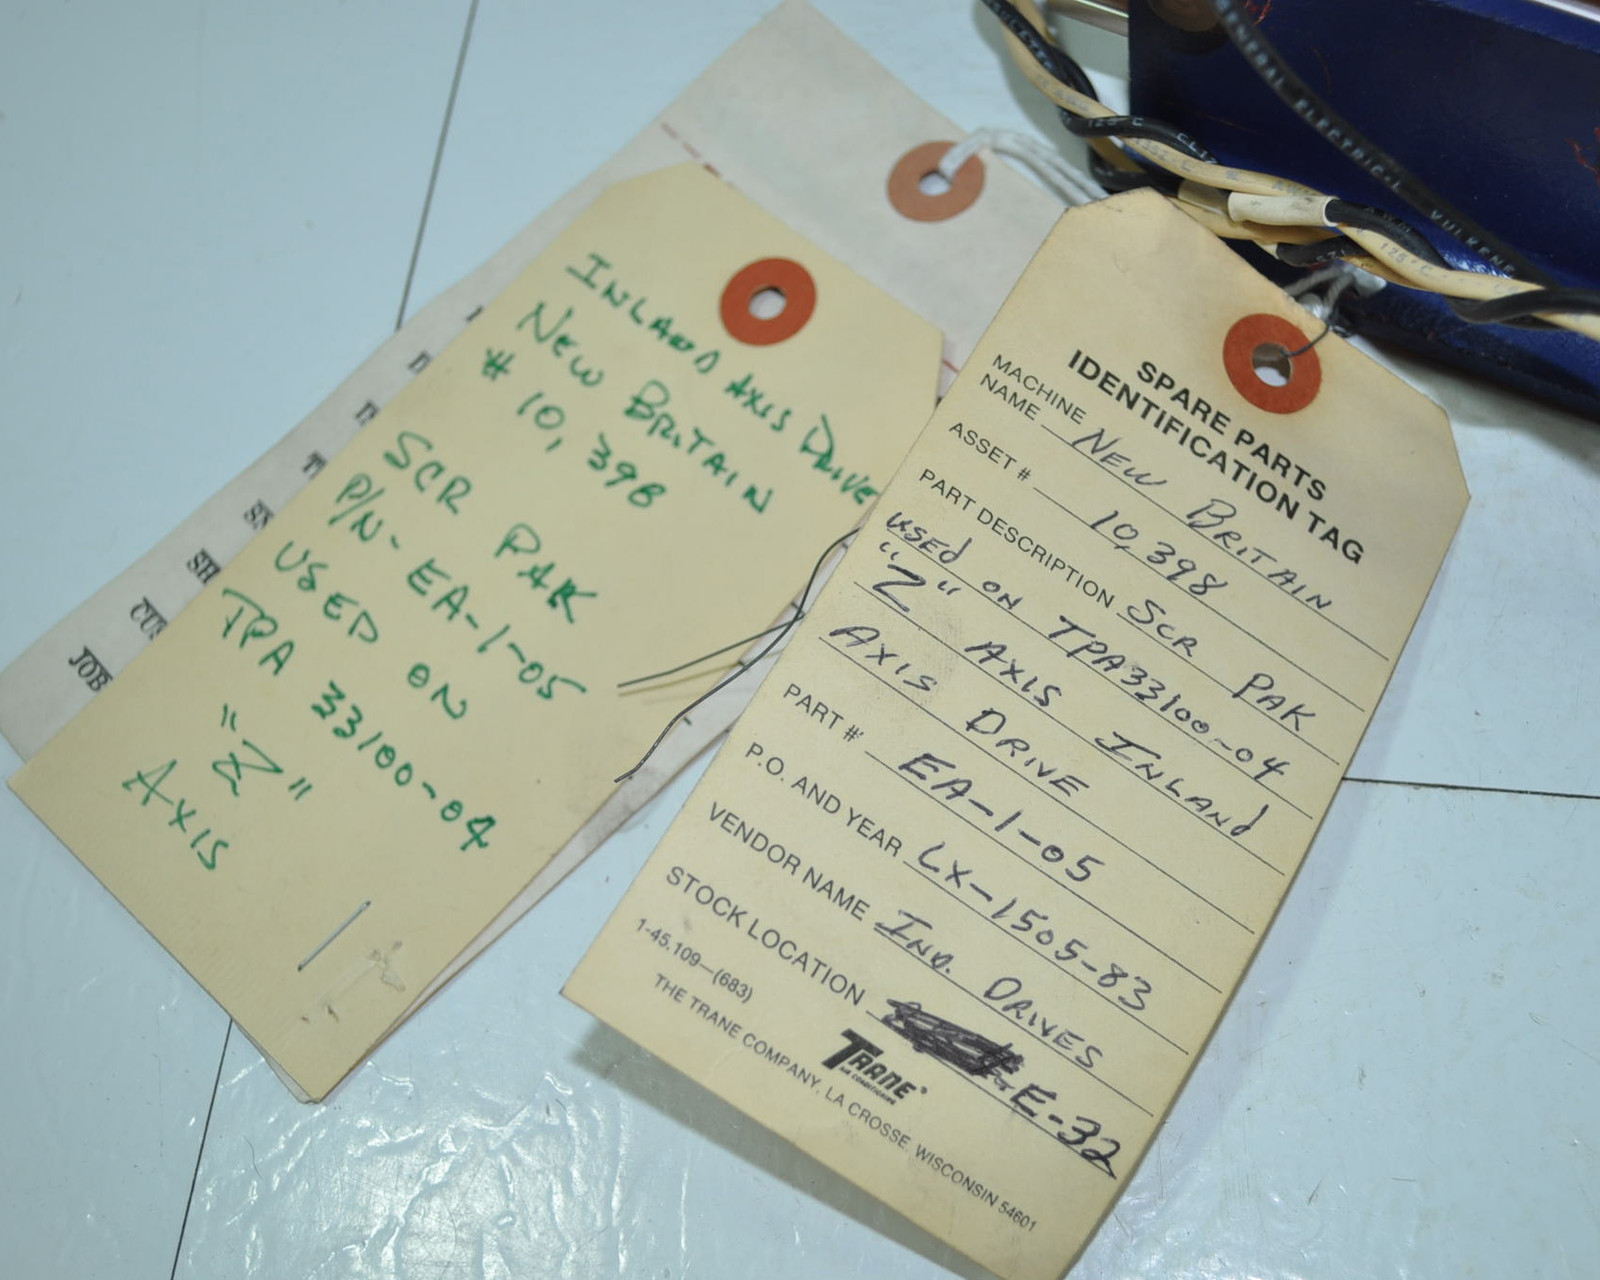 INLAND AXIS DRIVE
NEW BRITAIN
# 10,398
SCR PAK
P/N- EA-1-05
USED ON
TPA 33100-04
"Z"
AXIS
JOB
SPARE PARTS
IDENTIFICATION TAG
MACHINE
NAME NEW BRITAIN
ASSET # 10,398
PART DESCRIPTION SCR PAK
USED ON TPA33100-04
"Z" AXIS INLANd
AXIS DRIVE
PART # EA-1-05
P.O. AND YEAR LX-1505-83
VENDOR NAME IND. DRIVES
STOCK LOCATION E-32
1-45.109—(683)
TRANE®
AIR CONDITIONING
THE TRANE COMPANY, LA CROSSE, WISCONSIN 54601
GENERAL ELECTRIC
VULKENE
125°C